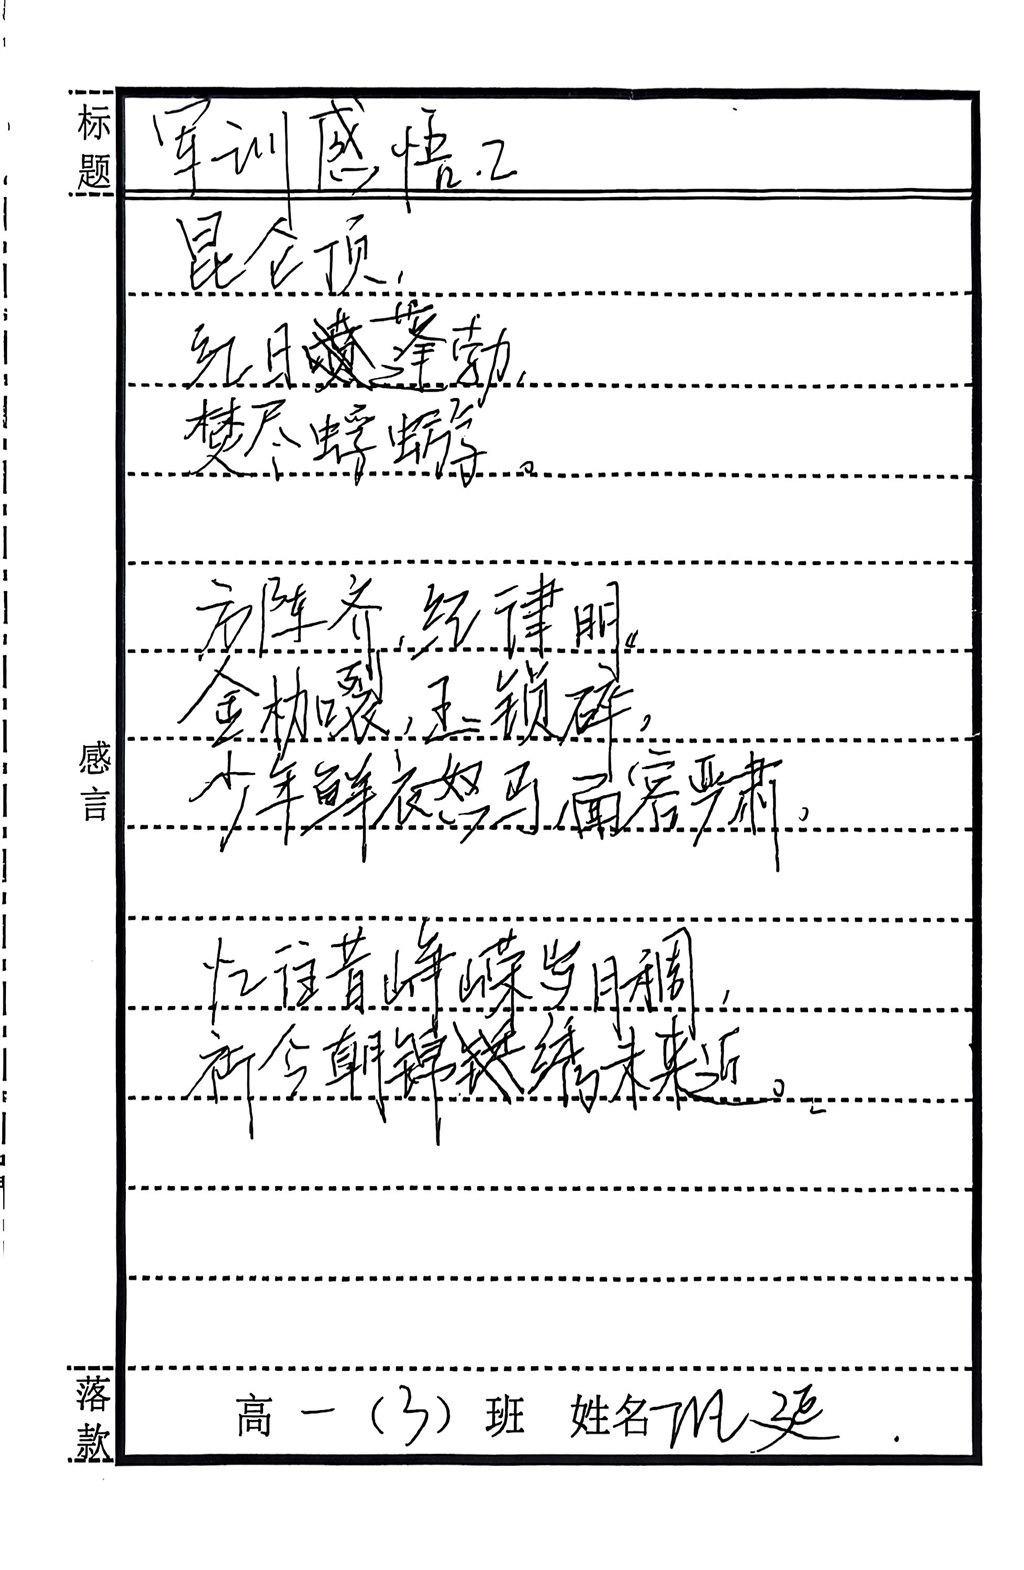 标题
军训感悟.2
昆仑顶,
红日蓬勃,
焚尽蜉蝣。
方阵齐,纪律明。
金枷裂,玉锁碎,
少年鲜衣怒马,面容严肃。
感言
忆往昔峥嵘岁月稠,
祈今朝锦绣未来近。
落款
高一(3)班 姓名